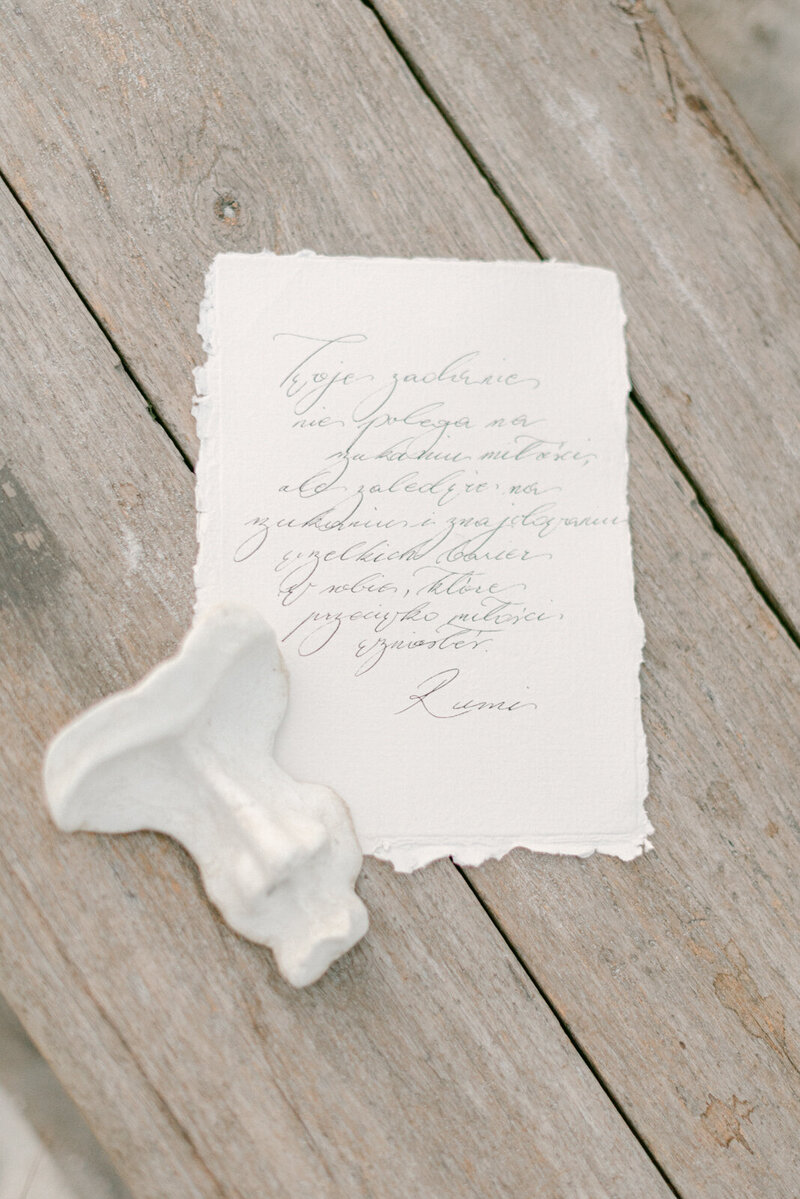 Twoje zadanie
nie polega na
szukaniu miłości,
ale zaledwie na
szukaniu i znajdowaniu
wszelkich barier
w sobie, które
przeciwko miłości
wzniosłeś.
Rumi